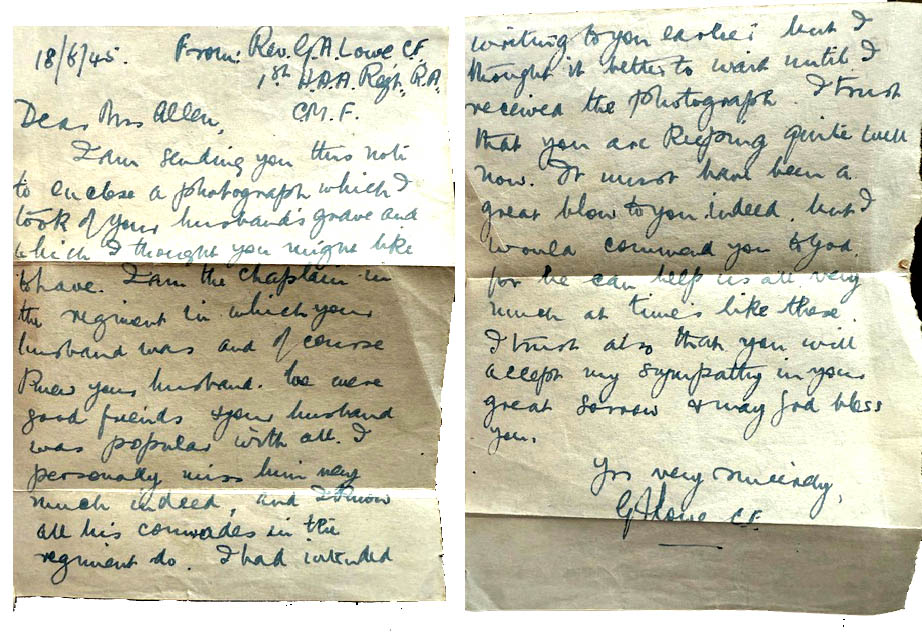 18/6/45. From: Rev. G.A. Lowe CF.
1st H.A.A. Regt. R.A.
C.M.F.
Dear Mrs Allen,
I am sending you this note
to enclose a photograph which I
took of your husband's grave and
which I thought you might like
to have. I am the chaplain in
the regiment in which your
husband was and of course
knew your husband. We were
good friends & your husband
was popular with all. I
personally miss him very
much indeed, and I know
all his comrades in the
regiment do. I had intended
writing to you earlier but I
thought it better to wait until I
received the photograph. I trust
that you are keeping quite well
now. It must have been a
great blow to you indeed, but I
would commend you to God
for he can help us all very
much at times like these.
I trust also that you will
accept my sympathy in your
great sorrow & may God bless
you.
Yrs very sincerely,
G A Lowe C.F.